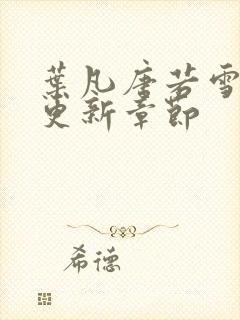 葉凡唐若雪
更新章節
希德